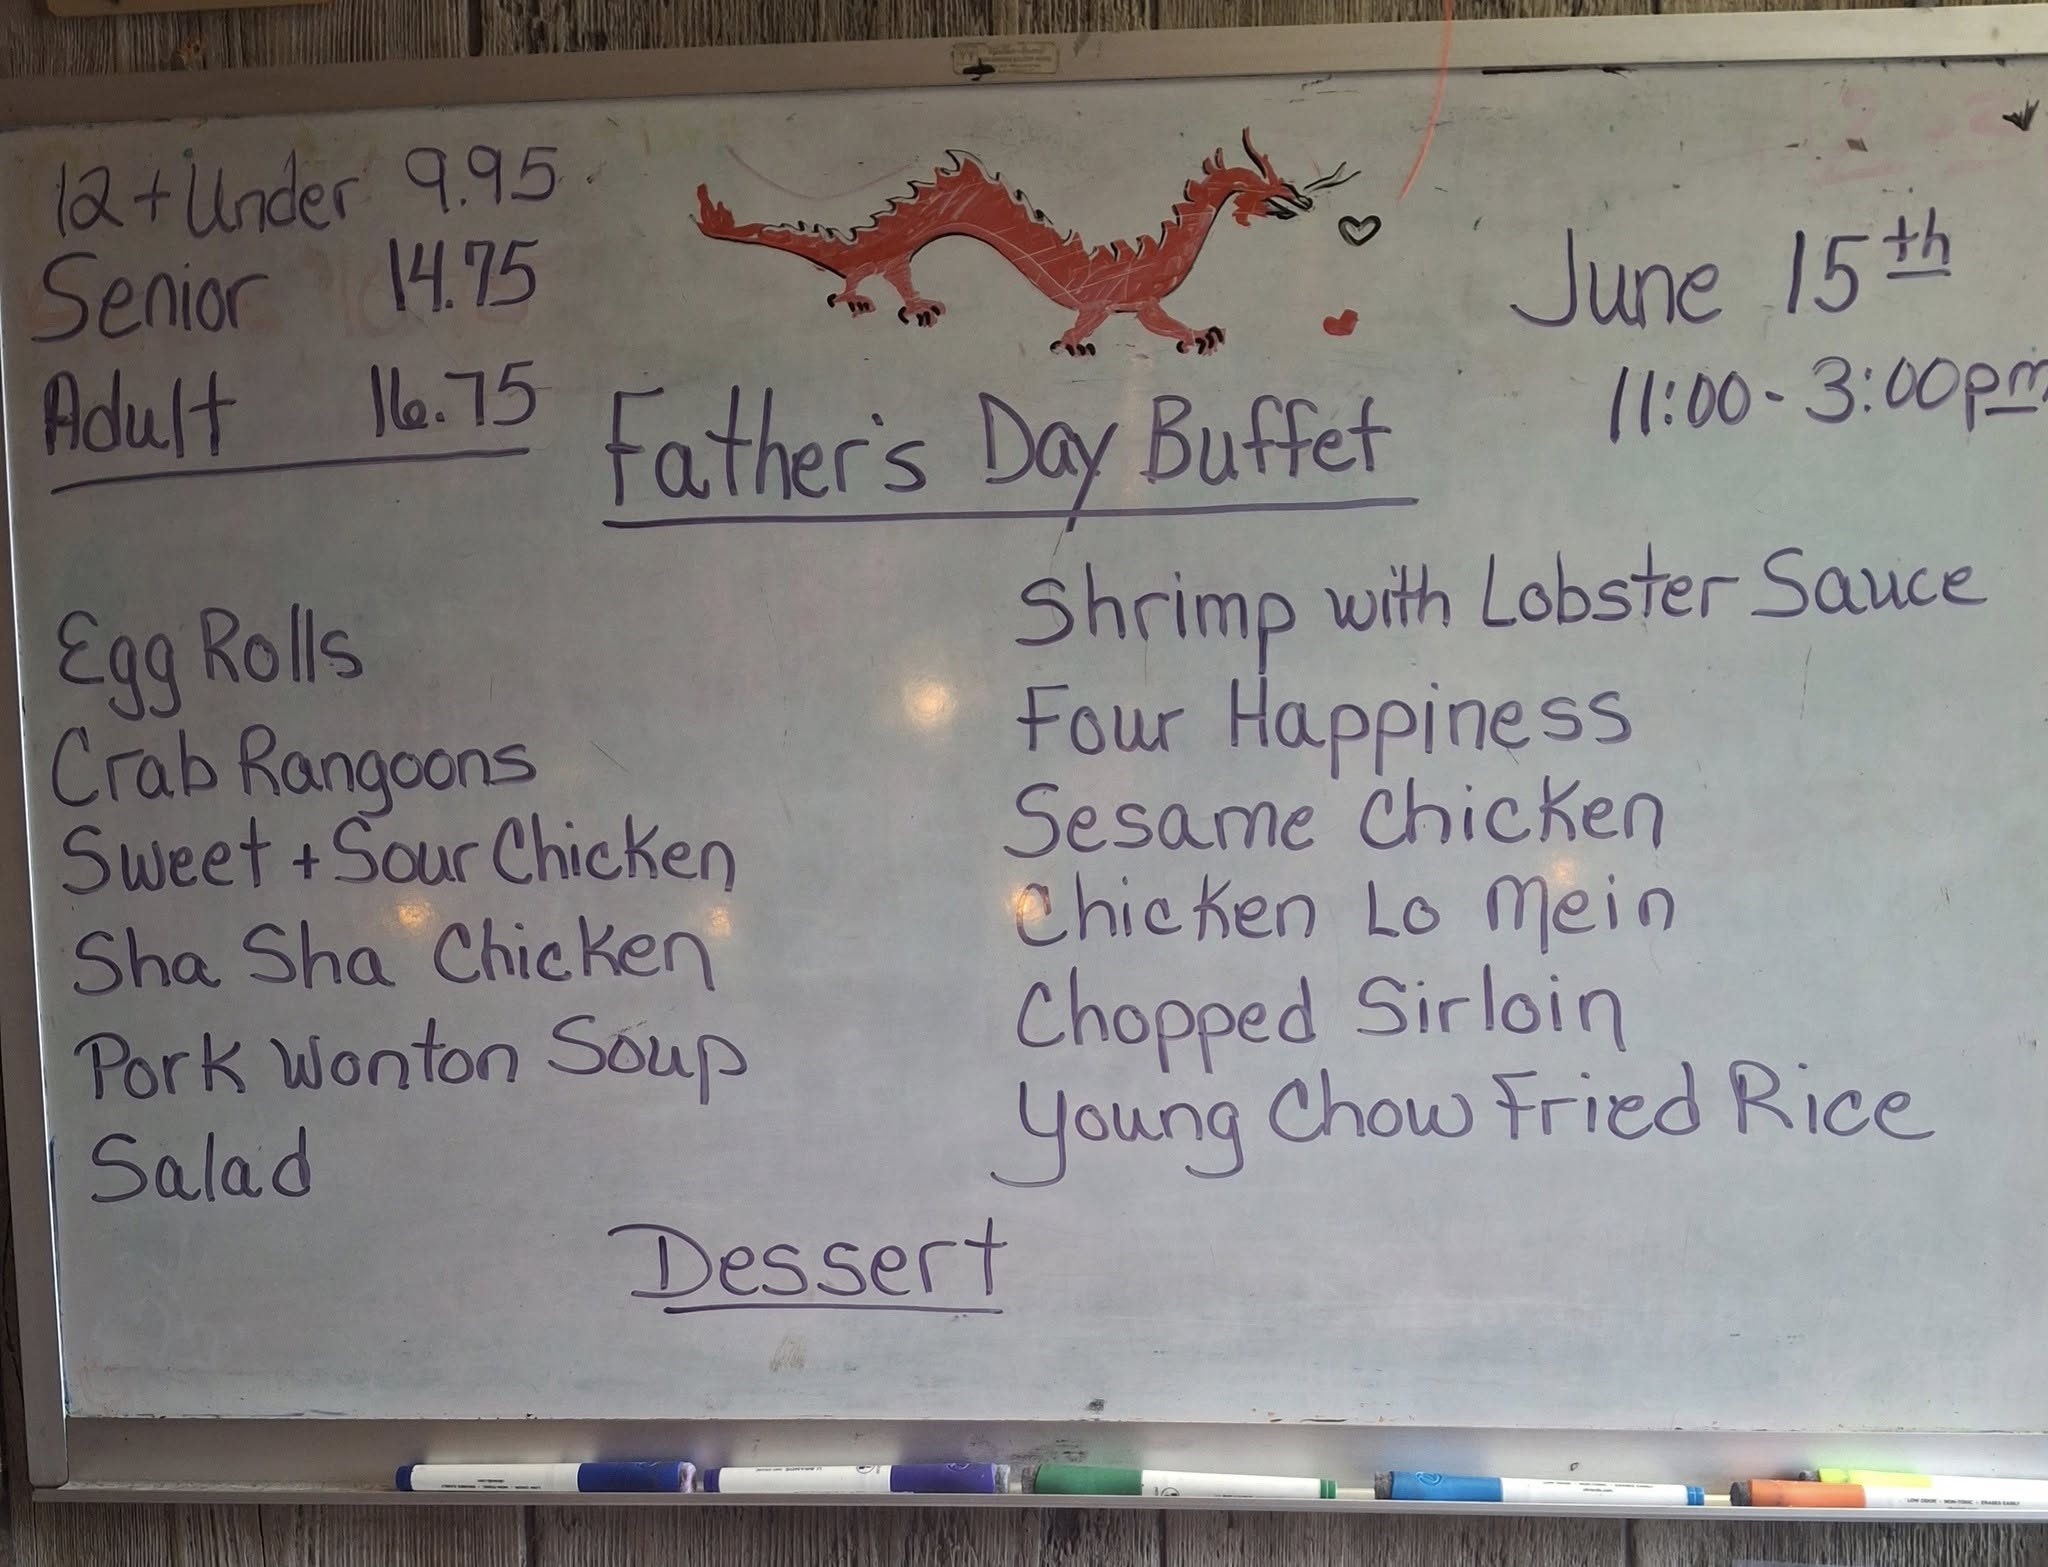 12 + Under 9.95
Senior 14.75
Adult 16.75
June 15th
11:00 - 3:00pm
Father's Day Buffet
Egg Rolls
Crab Rangoons
Sweet + Sour Chicken
Sha Sha Chicken
Pork Wonton Soup
Salad
Shrimp with Lobster Sauce
Four Happiness
Sesame Chicken
Chicken Lo Mein
Chopped Sirloin
Young Chow Fried Rice
Dessert
LOW ODOR • NON-TOXIC • ERASES EASILY